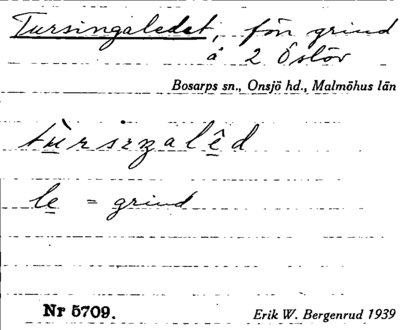 Tursingaledet, förr grind
å 2 Östöv
Bosarps sn., Onsjö hd., Malmöhus län
tu̱rsiŋalê̱d
le̱ = grind
Nr 5709.
Erik W. Bergenrud 1939